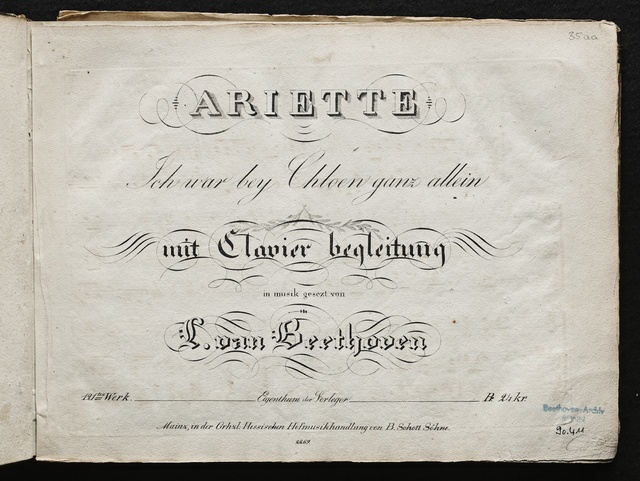 35aa
ARIETTE
Ich war bey Chloen ganz allein
mit Clavier begleitung
in musik gesezt von
L. van Beethoven
121tes Werk. Eigenthum der Verleger. Pr. 24 kr.
Mainz, in der Grhzl. Hessischen Hofmusikhandlung von B. Schott Söhne.
Beethoven-Archiv
BONN